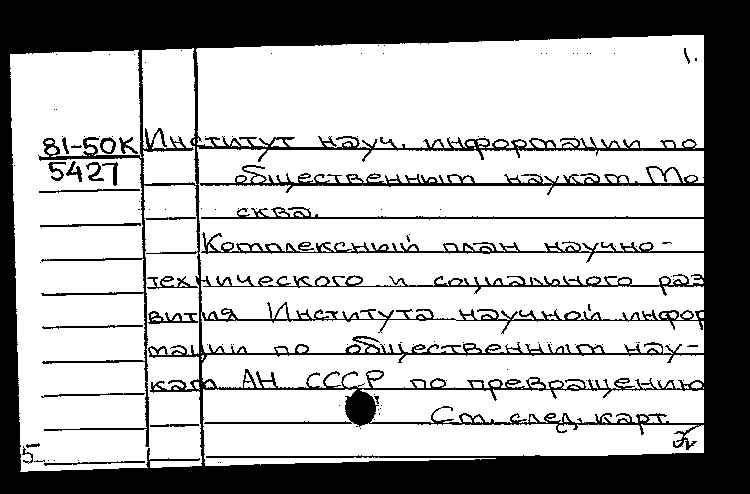 1.
81-50К Институт науч. информации по
5427 общественным наукам. Мо
сква.
Комплексный план научно-
технического и социального раз
вития Института научной инфор
мации по общественным нау-
кам АН СССР по превращению
См. след. карт.
5